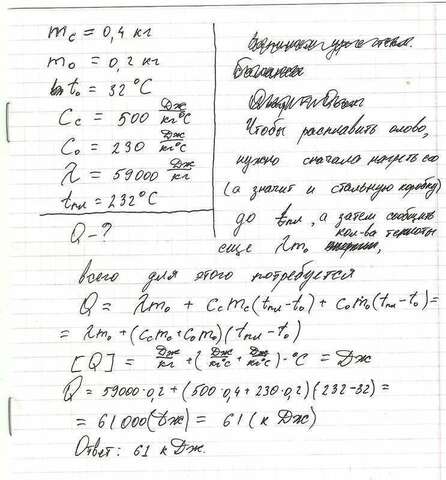 m_c = 0,4 кг
m_o = 0,2 кг
t_o = 32 °C
C_c = 500 Дж/кг°C
C_o = 230 Дж/кг°C
λ = 59000 Дж/кг
t_пл = 232 °C
Q - ?
Чтобы расплавить олово,
нужно сначала нагреть его
(а значит и стальную коробку)
до t_пл, а затем сообщить
еще λm_o кол-ва теплоты
всего для этого потребуется
Q = λm_o + C_c m_c (t_пл - t_o) + C_o m_o (t_пл - t_o) =
= λm_o + (C_c m_c + C_o m_o)(t_пл - t_o)
[Q] = Дж/кг + (Дж/кг°C + Дж/кг°C) · °C = Дж
Q = 59000 · 0,2 + (500 · 0,4 + 230 · 0,2)(232 - 32) =
= 61000 (Дж) = 61 (кДж)
Ответ: 61 кДж.